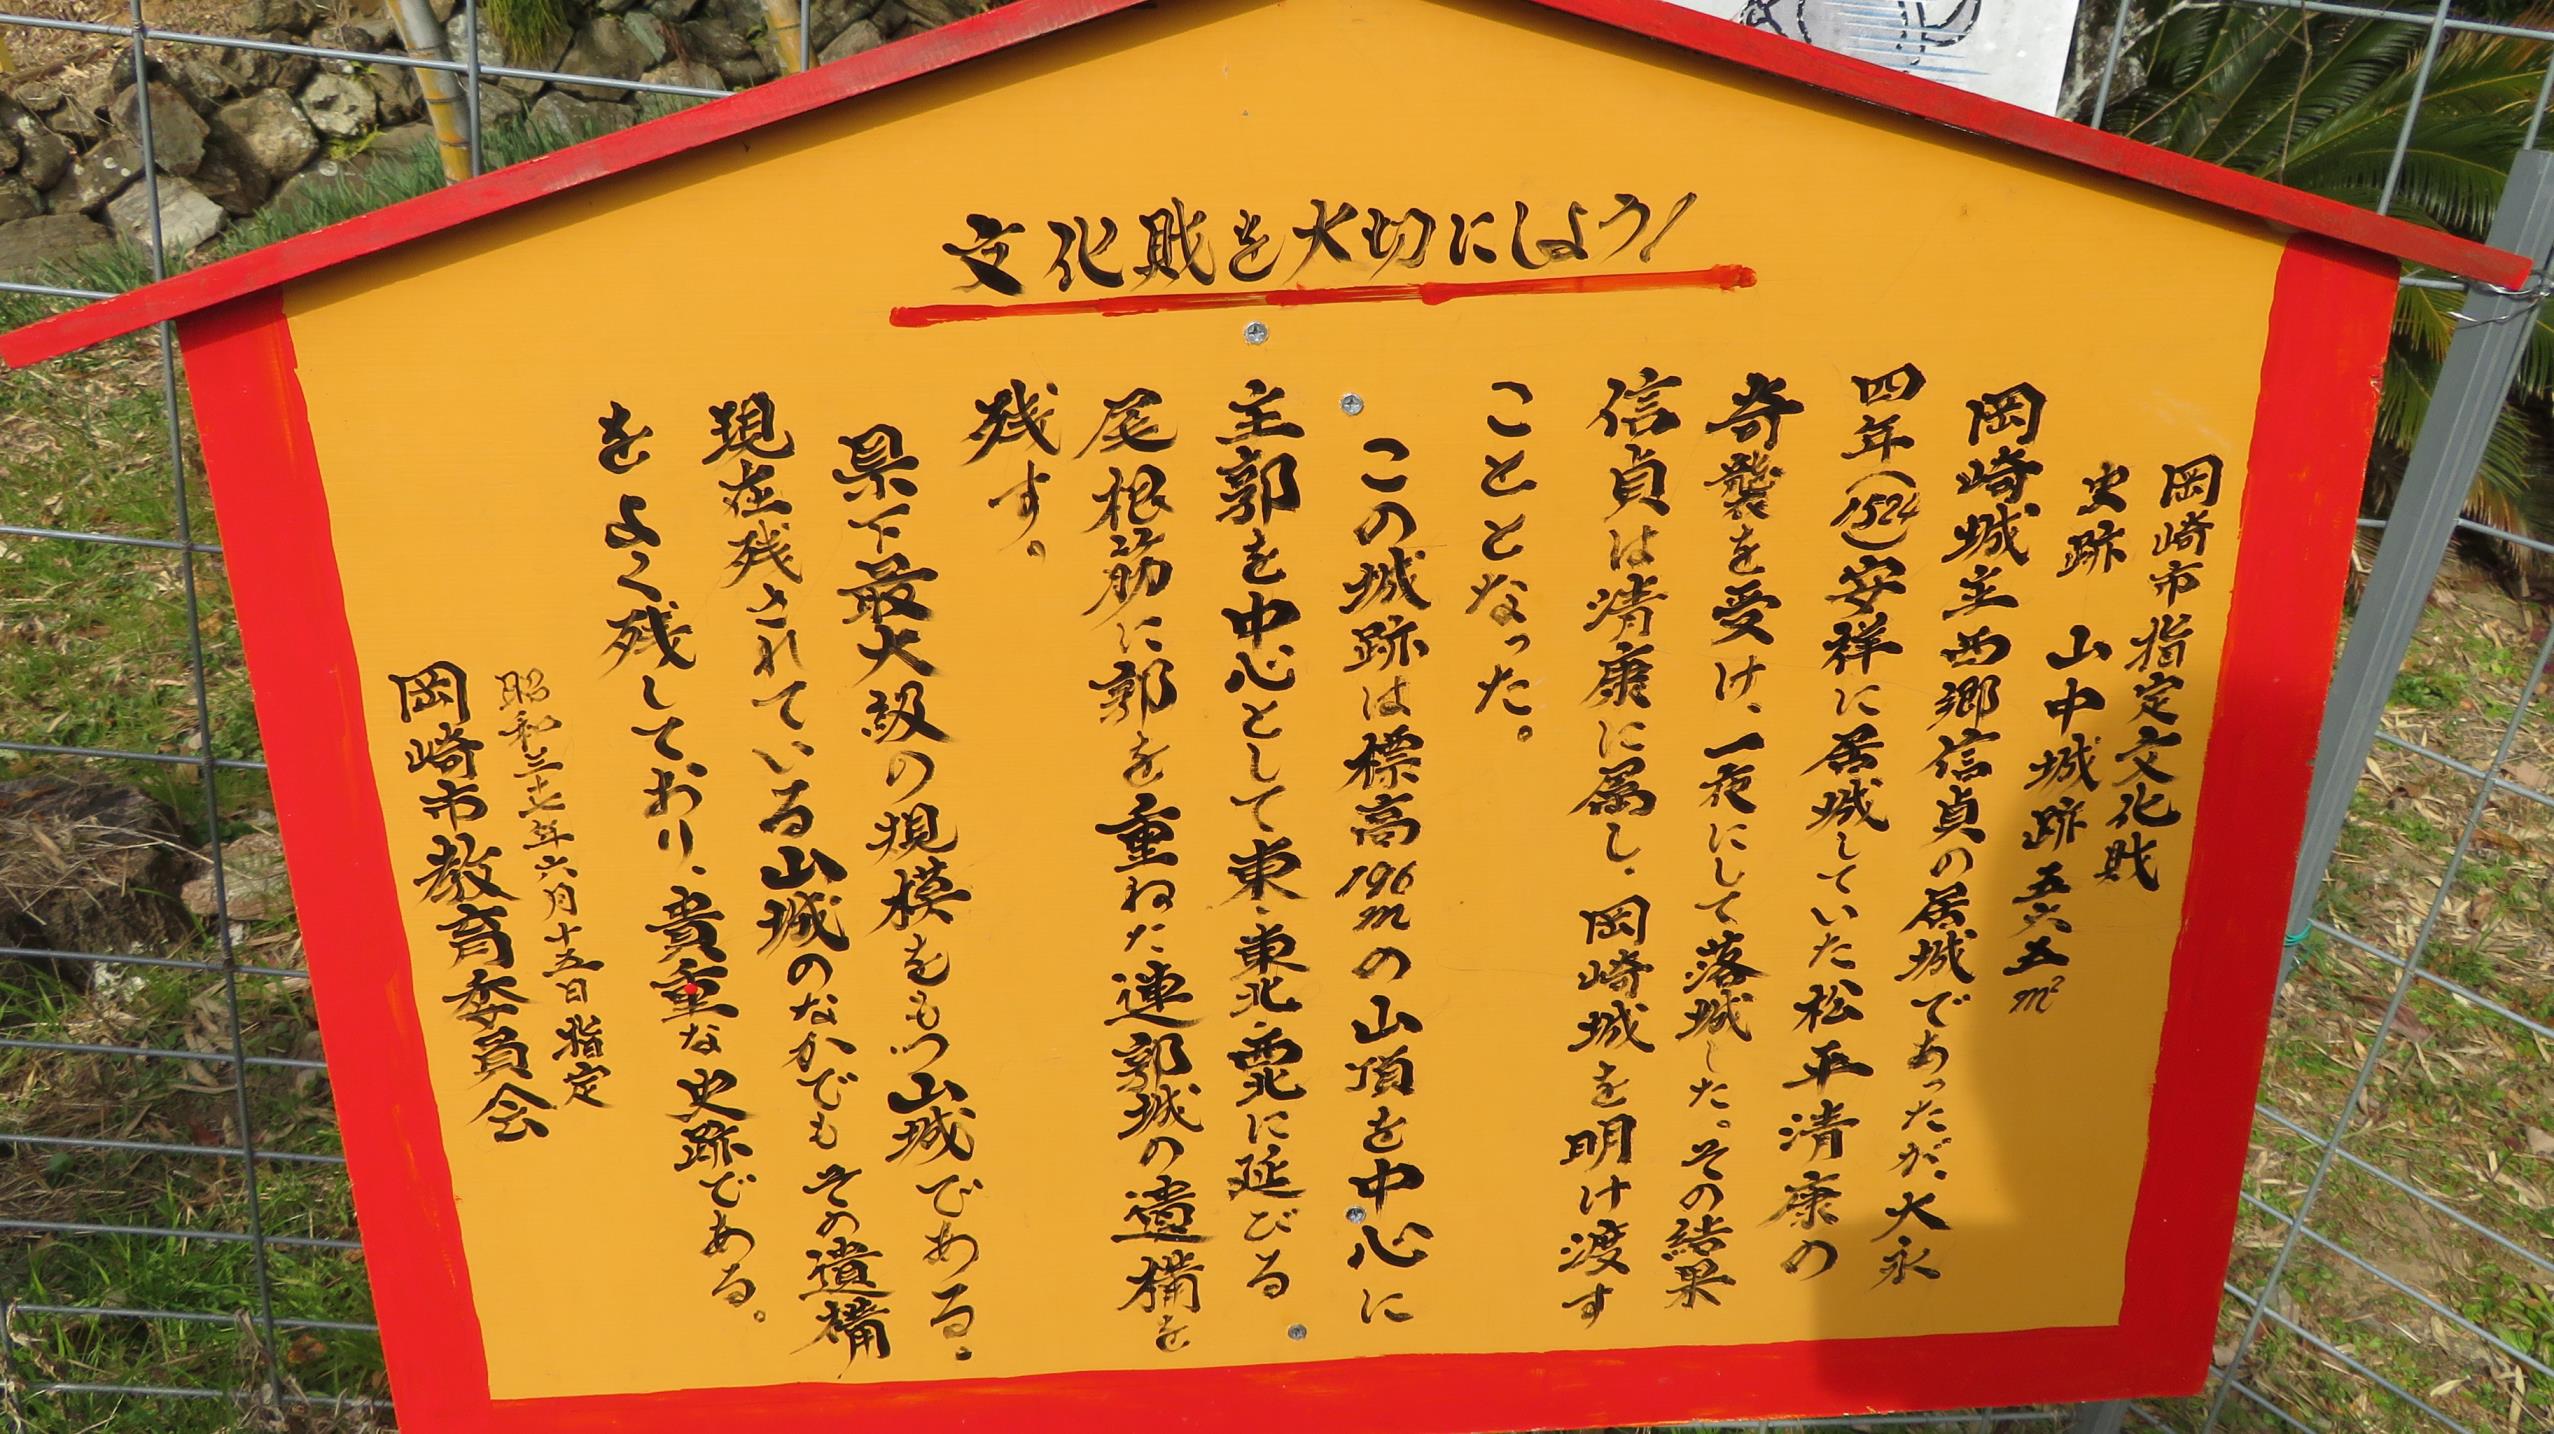 文化財を大切にしよう！
岡崎市指定文化財
史跡 山中城跡 五六五m²
岡崎城主西郷信貞の居城であったが、大永
四年(1524)安祥に居城していた松平清康の
奇襲を受け、一夜にして落城した。その結果
信貞は清康に属し、岡崎城を明け渡す
こととなった。
この城跡は標高196mの山頂を中心に
主郭を中心として東、東北、西北に延びる
尾根筋に郭を重ねた連郭城の遺構を
残す。
県下最大級の規模をもつ山城である。
現在残されている山城のなかでもその遺構
をよく残しており、貴重な史跡である。
昭和三十七年六月十五日 指定
岡崎市教育委員会